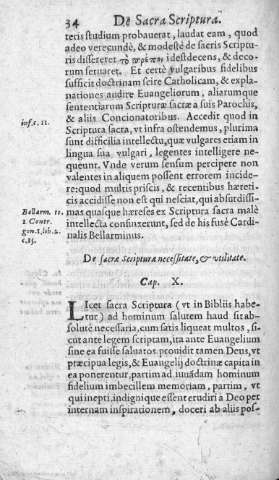 34 De Sacra Scriptura.
teris studium probauerat, laudat eam, quod
adeo verecundè, & modestè de sacris Scriptu-
ris dissereret τὸ πρέπον, i destdecens, & deco-
rum seruaret. Et certè vulgaribus fidelibus
sufficit doctrinam scire Catholicam, & expla-
nationes audire Euangeliorum, aliarumque
sententiarum Scripturæ sacræ a suis Parochis,
& aliis Concionatoribus. Accedit quod in
inf.c.11. Scriptura sacra, vt infra ostendemus, plurima
sunt difficilia intellectu, quæ vulgares etiam in
lingua sua vulgari, legentes intelligere ne-
queunt. Vnde verum sensum percipere non
valentes in aliquem possent errorem incide-
re: quod multis priscis, & recentibus hæreti-
cis accidisse non est qui nesciat, qui absurdissi-
Bellarm. mas quasque hæreses ex Scriptura sacra malè
intellecta consinxerunt, sed de his fusè Cardi-
nalis Bellarminus.
De sacra Scriptura necessitate, & vtilitate.
Cap. X.
Licet sacra Scriptura (vt in Bibliis habe-
tur) ad hominum salutem haud sit ab-
solutè necessaria, cum satis liqueat multos, si-
cut ante legem scriptam, ita ante Euangelium
sine ea fuisse saluatos: prouidit tamen Deus, vt
præcipua legis, & Euangelij doctrinæ capita in
ea ponerentur, partim ad iuuādam hominum
fidelium imbecillem memoriam, partim, vt
qui inepti, indignique essent erudiri à Deo per
internam inspirationem, doceri ab aliis pos-